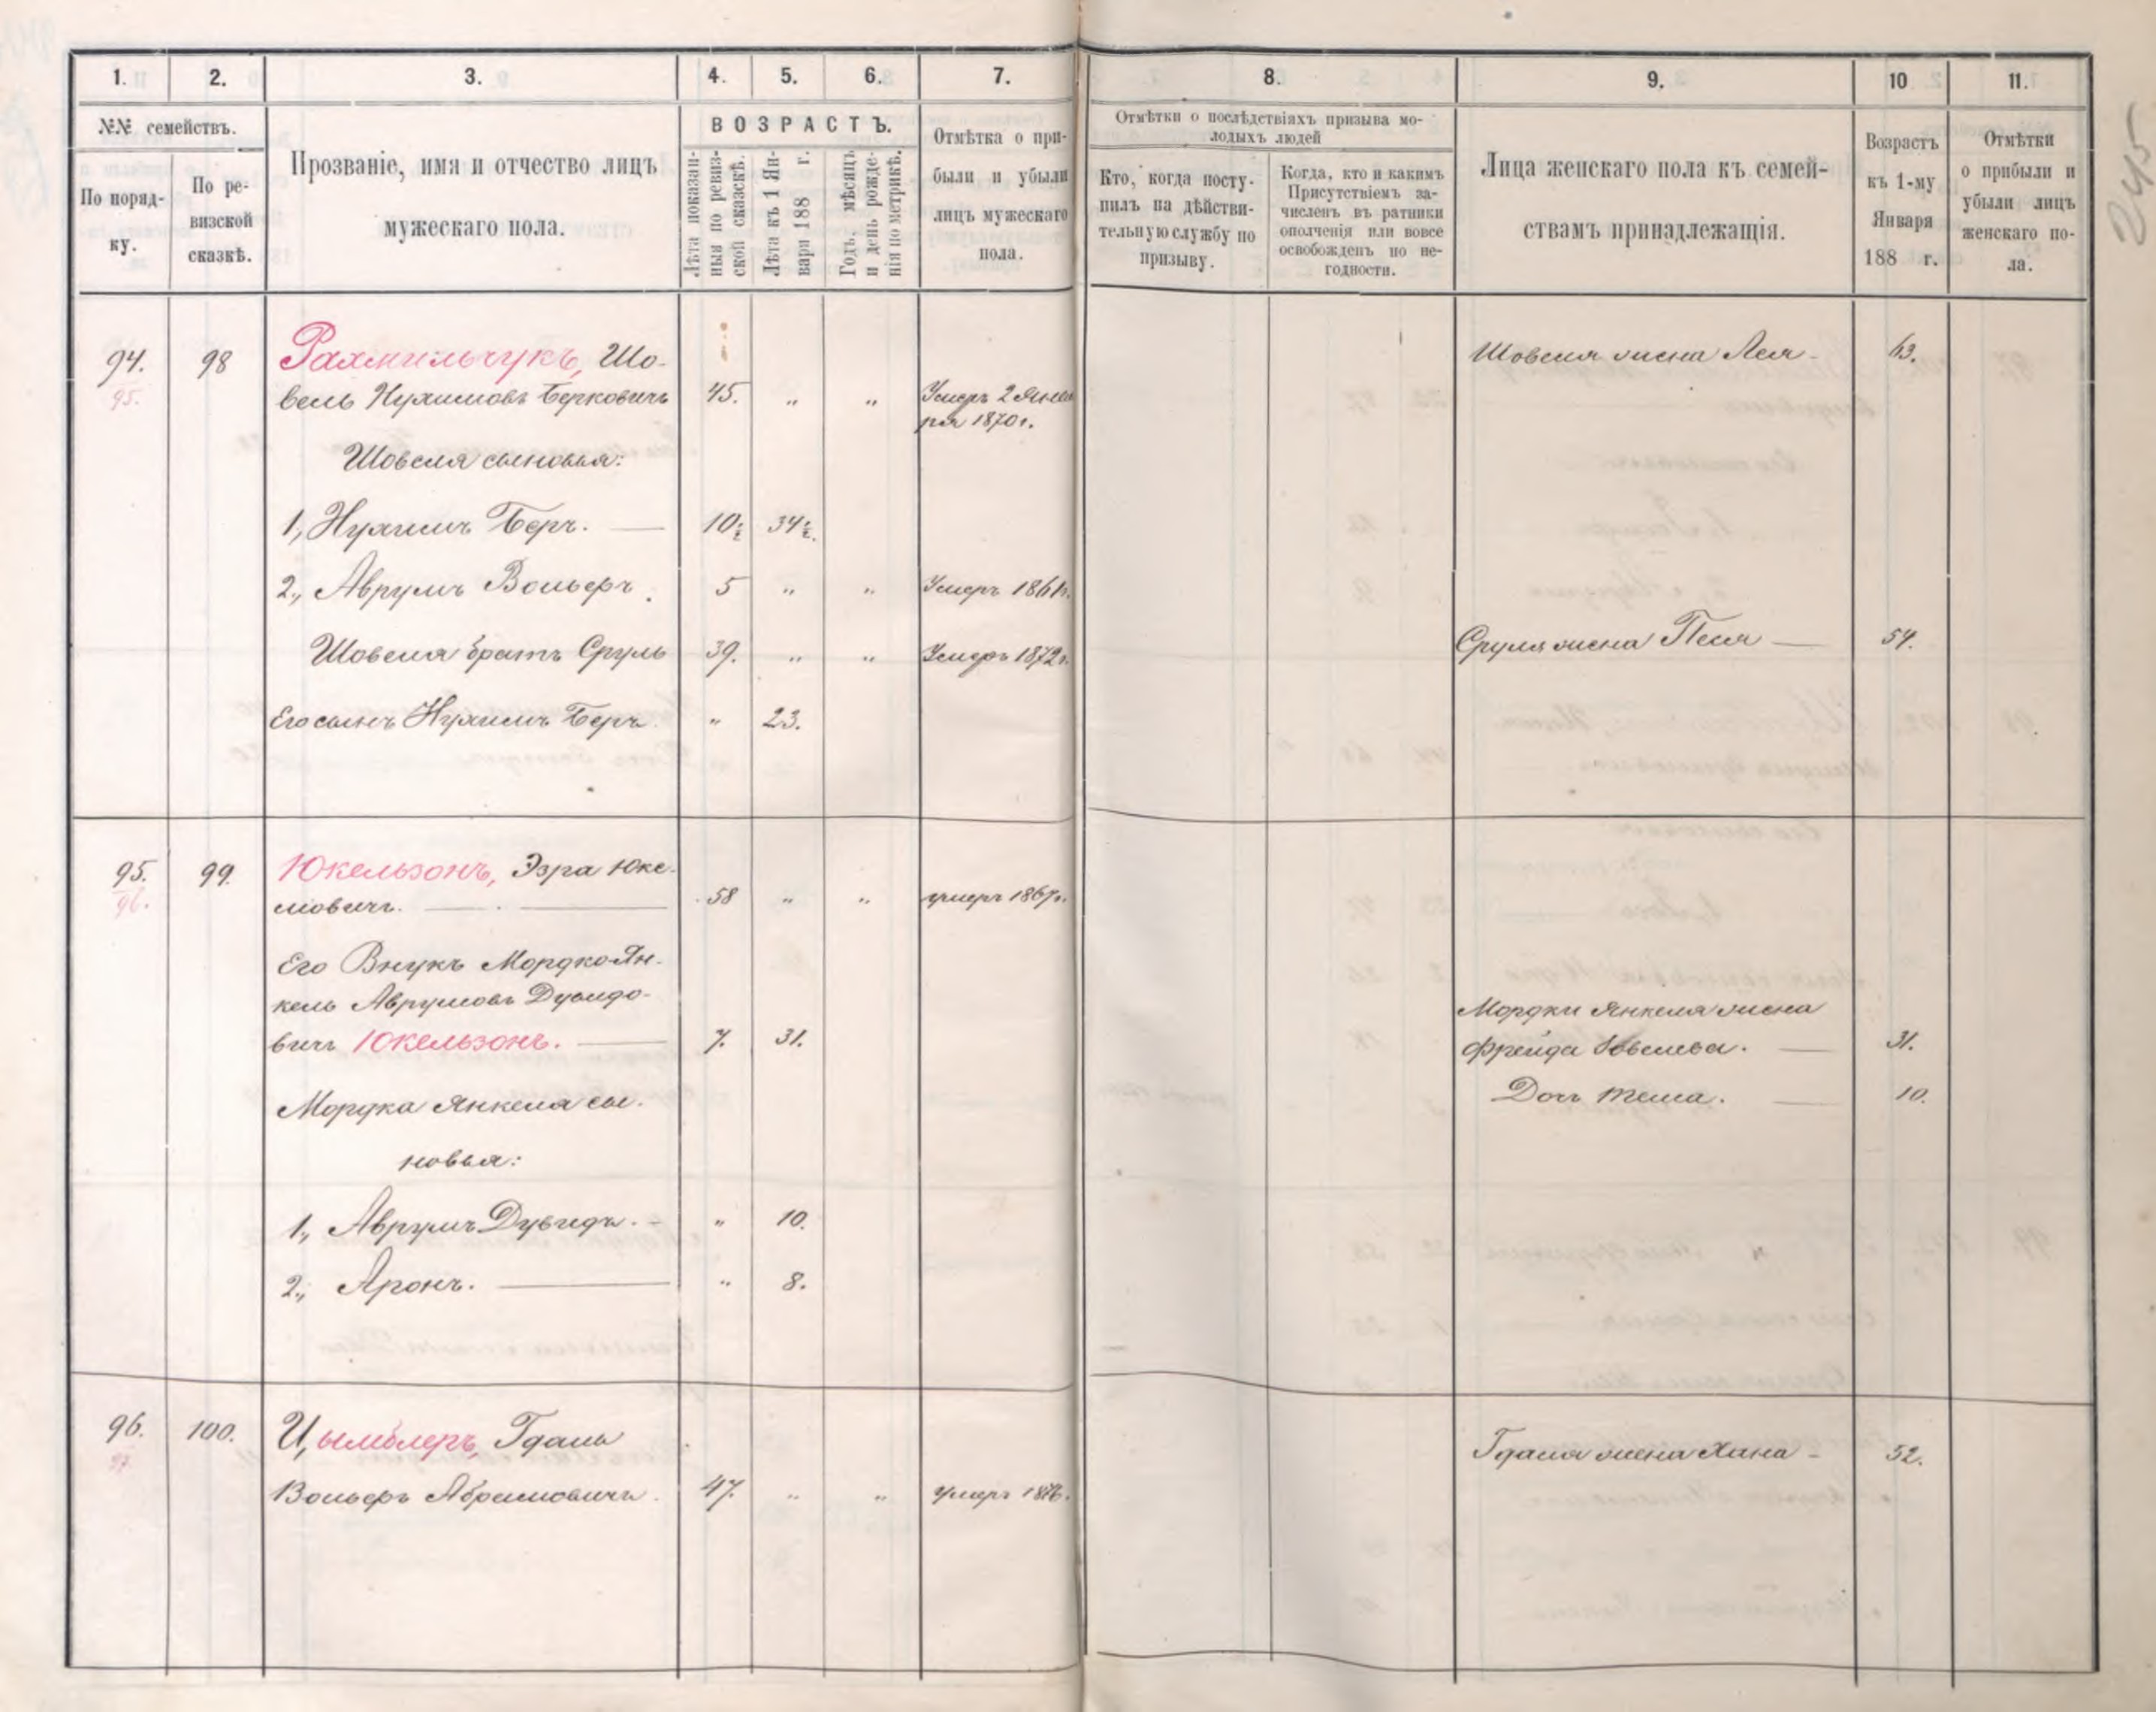 1. 2. 3. 4. 5. 6. 7. 8. 9. 10 11.
№№ семействъ.
По поряд-
ку.
По ре-
визской
сказкѣ.
Прозваніе, имя и отчество лицъ
мужескаго пола.
ВОЗРАСТЪ.
Лѣта показан-
ныя по ревиз-
ской сказкѣ.
Лѣта къ 1 Ян-
варя 188 г.
Годъ, мѣсяцъ
и день рожде-
нія по метрикѣ.
Отмѣтка о при-
были и убыли
лицъ мужескаго
пола.
Отмѣтки о послѣдствіяхъ призыва мо-
лодыхъ людей
Кто, когда посту-
пилъ на дѣйстви-
тельную службу по
призыву.
Когда, кто и какимъ
Присутствіемъ за-
численъ въ ратники
ополченія или вовсе
освобожденъ по не-
годности.
Лица женскаго пола къ семей-
ствамъ принадлежащія.
Возрастъ
къ 1-му
Января
188 г.
Отмѣтки
о прибыли и
убыли лицъ
женскаго по-
ла.
245
94. 98 Рахмильчукъ, Шо- Шовеля жена Лея - 63.
95. вель Нухимовъ Берковичъ 45. " " Умеръ 2 Янва
ря 1870 г.
Шовеля сыновья:
1, Нухимъ Беръ. — 10½ 34½.
2., Аврумъ Вольфъ. 5 " " Умеръ 1861 г.
Шовеля братъ Сруль 39. " " Умеръ 1872 г. Сруля жена Песя — 54.
Его сынъ Нухимъ Беръ " 23.
95. 99. Юкельзонъ, Эзра Юке-
96. лювичъ. — 58 " " умеръ 1867 г.
Его Внукъ Мордко Ян-
кель Аврумовъ Дувидо- Мордки Янкеля жена
вичъ Юкельзонъ. — 7. 31. Фрейда — 31.
Мордка Янкеля сы- Дочь Тема. — 10.
новья:
1., Аврумъ Дувидъ. - " 10.
2., Аронъ. — " 8.
96. 100. Цымблеръ, Гдаль Гдаля жена Хана - 52.
97 Вольфъ Абрамовичъ. 47. " " умеръ 1876.